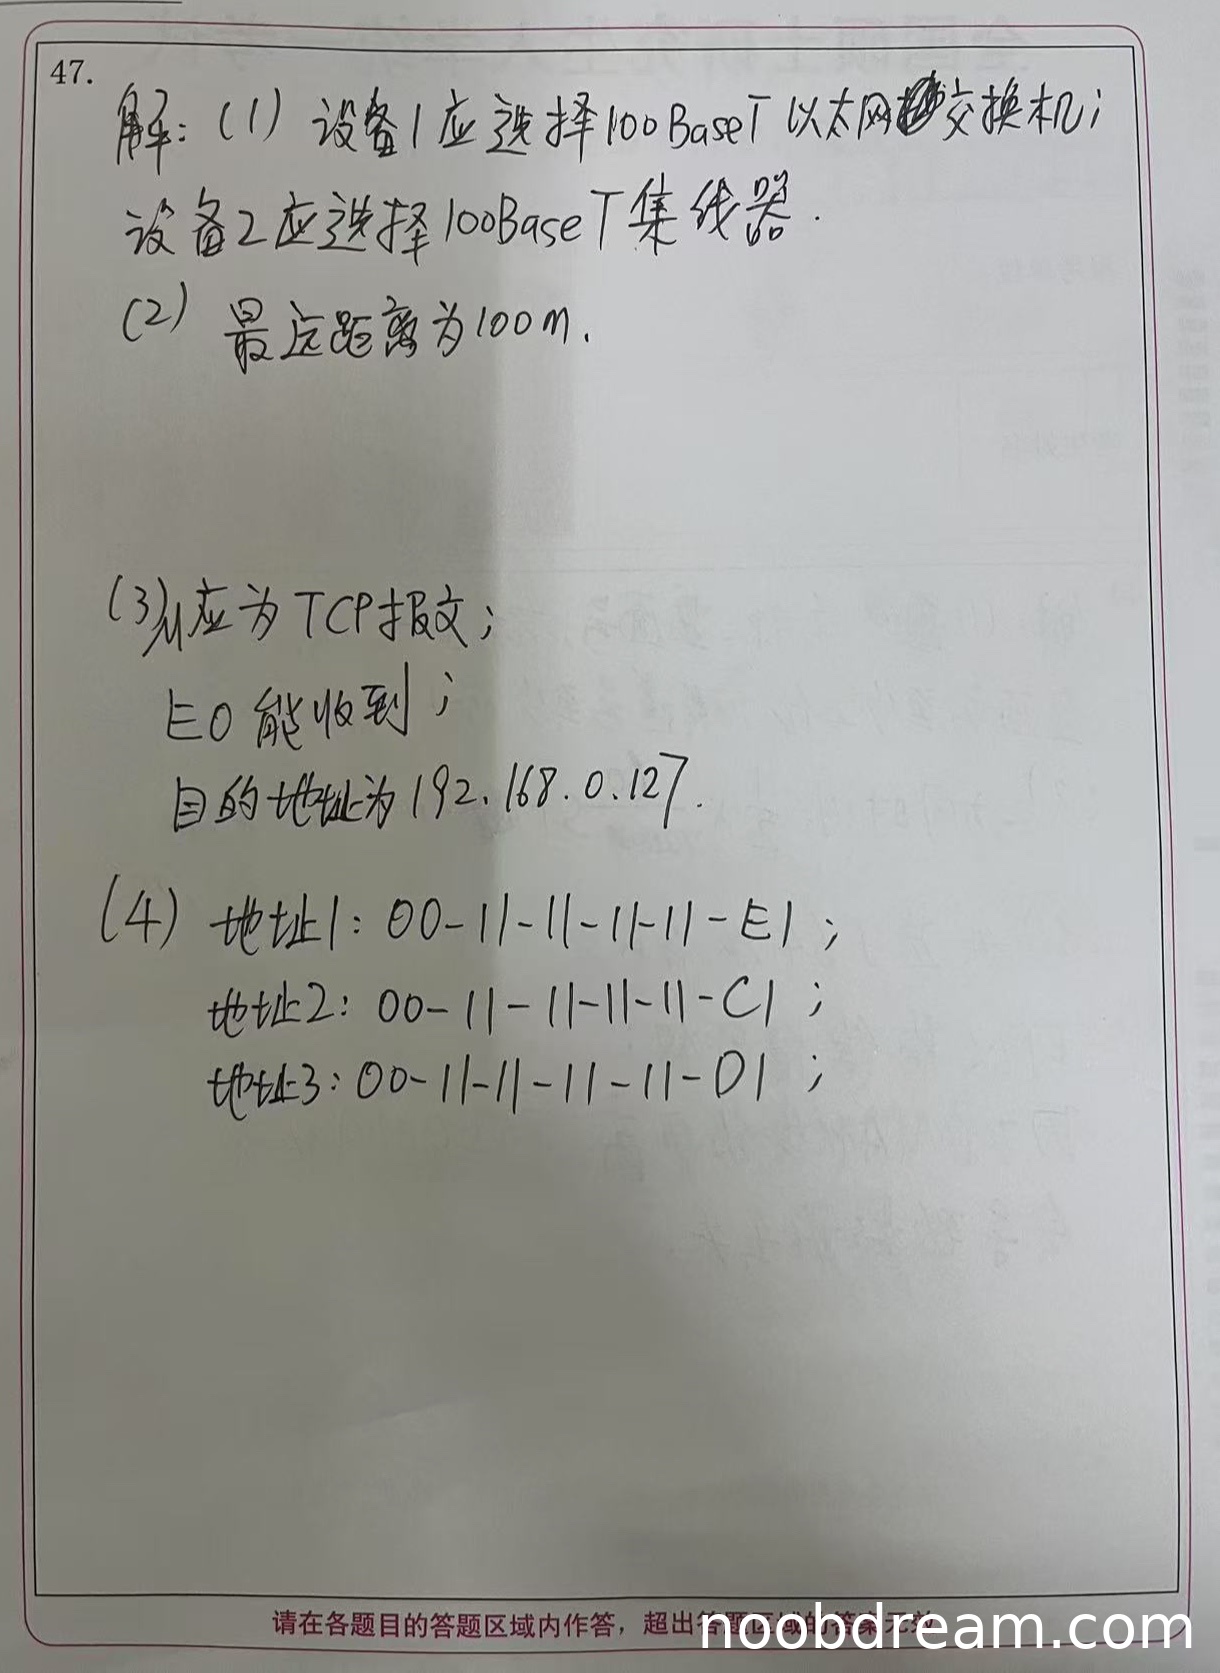 47.
解:(1)设备1应选择100BaseT以太网交换机;
设备2应选择100BaseT集线器.
(2) 最远距离为100m.
(3)M应为TCP报文;
E0能收到;
目的地址为192.168.0.127.
(4) 地址1: 00-11-11-11-11-E1;
地址2: 00-11-11-11-11-C1;
地址3: 00-11-11-11-11-D1;
请在各题目的答题区域内作答，超出答题区域的答案无效
noobdream.com